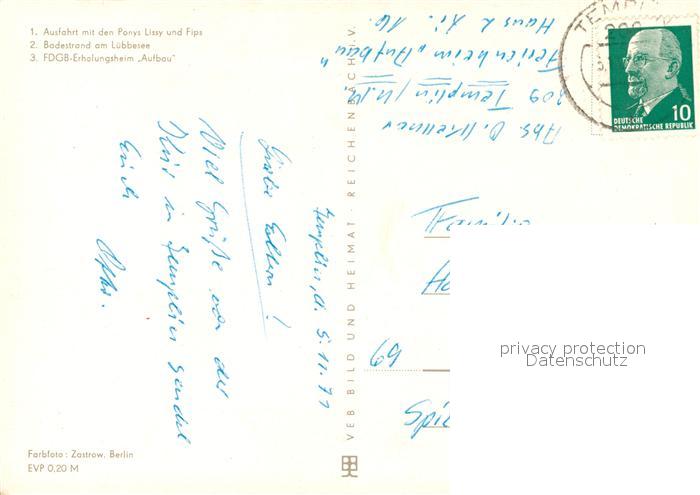 1. Ausfahrt mit den Ponys Lissy und Fips
2. Badestrand am Lübbesee
3. FDGB-Erholungsheim „Aufbau"
Templin, d. 5.11.71
Liebe Eltern!
Viel Grüße von der
Kur in Templin sendet
Euch
Farbfoto: Zastrow, Berlin
EVP 0,20 M
VEB BILD UND HEIMAT REICHENBACH I. V.
Abs.
209 Templin / U.M.
Ferienheim „Aufbau"
Haus 2 Zi. 16
TEMPLIN
10
DEUTSCHE
DEMOKRATISCHE REPUBLIK
69
privacy protection
Datenschutz